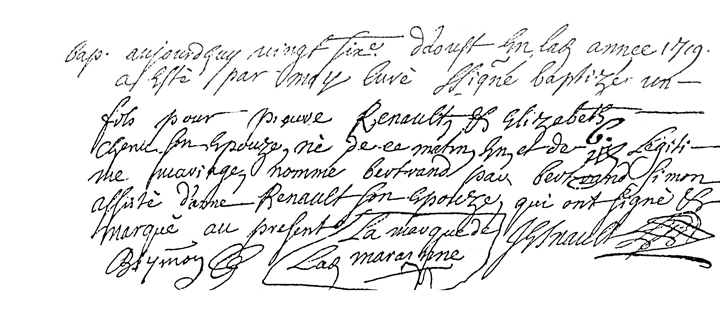 bap. aujourdhuy vingt sixe. daoust En lad annee 1719.
a Esté par moy curé ssigné baptizé un
fils pour pierre Renault & Elizabeth
chenu son Epouze, né de ce matin En et de Legiti
me mariage, nommé bertrand par bertrand Simon
assisté danne Renault son Epouze, qui ont signé &
marqué au present La marque de
B Symon Lad marainne